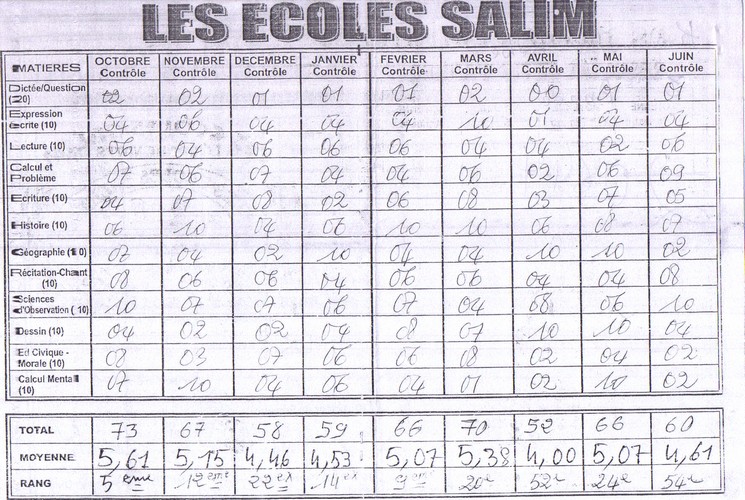 LES ECOLES SALIM
MATIERES OCTOBRE Contrôle NOVEMBRE Contrôle DECEMBRE Contrôle JANVIER Contrôle FEVRIER Contrôle MARS Contrôle AVRIL Contrôle MAI Contrôle JUIN Contrôle
Dictée/Question (20) 02 02 01 01 01 02 00 01 01
Expression écrite (10) 04 06 04 04 04 10 01 04
Lecture (10) 06 04 06 06 06 04 04 02 06
Calcul et Problème 07 06 07 04 04 06 02 06 09
Ecriture (10) 04 07 08 02 06 08 03 07 05
Histoire (10) 06 10 04 06 10 10 06 08 07
Géographie (10) 07 04 02 10 04 04 10 10 02
Récitation-Chant (10) 08 06 06 04 06 06 04 04 08
Sciences d'Observation (10) 10 07 07 06 07 04 08 06 10
Dessin (10) 04 02 02 04 08 07 10 10 04
Ed Civique - Morale (10) 08 03 07 06 06 08 02 04 02
Calcul Mental (10) 07 10 04 06 04 01 02 10 02
TOTAL 73 67 58 59 66 70 52 66 60
MOYENNE 5,61 5,15 4,46 4,53 5,07 5,38 4,00 5,07 4,61
RANG 5eme 12eme 22es 14es 20e 52e 24e 54e